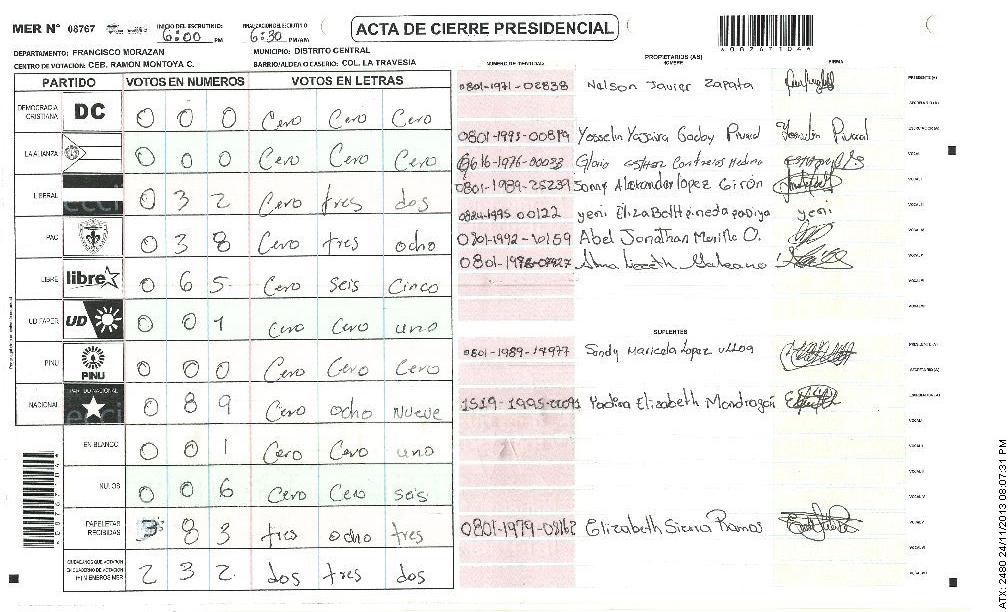 MER N° 08767 INICIO DEL ESCRUTINIO: 6:00 PM FINALIZACION DEL ESCRUTINIO 6:30 PM/AM ACTA DE CIERRE PRESIDENCIAL
DEPARTAMENTO: FRANCISCO MORAZAN MUNICIPIO: DISTRITO CENTRAL
CENTRO DE VOTACION: CEB. RAMON MONTOYA C. BARRIO/ALDEA O CASERIO: COL. LA TRAVESIA
PARTIDO VOTOS EN NUMEROS VOTOS EN LETRAS
DEMOCRACIA CRISTIANA DC 0 0 0 Cero Cero Cero
LA ALIANZA 0 0 0 Cero Cero Cero
LIBERAL 0 3 2 Cero tres dos
PAC 0 3 8 Cero tres ocho
LIBRE libre 0 6 5 Cero seis Cinco
UD FAPER UD 0 0 1 Cero Cero uno
PINU PINU 0 0 0 Cero Cero Cero
NACIONAL PARTIDO NACIONAL 0 8 9 Cero ocho nueve
EN BLANCO 0 0 1 Cero Cero uno
NULOS 0 0 6 Cero Cero seis
PAPELETAS RECIBIDAS 3 8 3 tres ocho tres
CIUDADANOS QUE VOTARON EN CUADERNO DE VOTACION (+) MIEMBROS MER 2 3 2 dos tres dos
NUMERO DE IDENTIDAD PROPIETARIOS (AS) NOMBRE FIRMA
0801-1971-02838 Nelson Javier Zapata
0801-1993-00819 Yosselin Yajaira Godoy
0616-1976-00023 Gloria Esther Contreras Medina
0801-1989-25239 Sonny Alexander lopez Girón
1995 00122 yeni Elizabeth pineda yeni
0801-1992-10159 Abel Jonathan Murillo O.
0801-
SUPLENTES
0801-1989-14977 Sandy Maricela Lopez ulloa
1519-1995- Elizabeth Mondragon
0801-1979-08162 Elizabeth Sierra Ramos
ATX: 2480 24/11/2013 08:07:31 PM